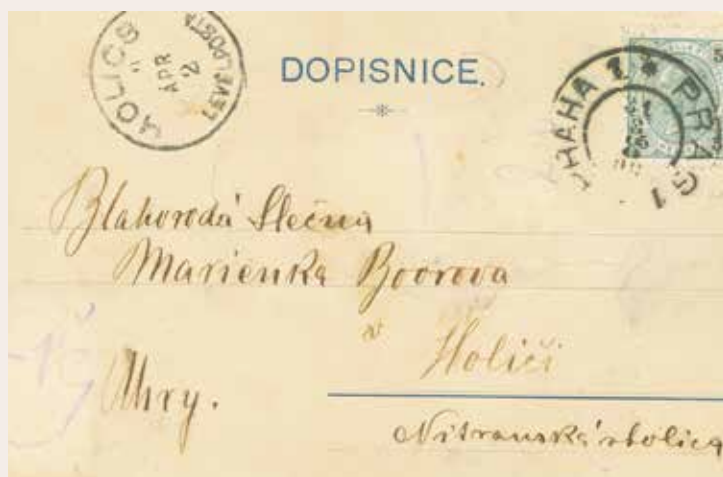 HOLICS
APR
2
LEVELPOSTA
DOPISNICE.
PRAHA 1 * PRAG 1
Blahorodá Slečna
Marienka Boorova
v
Holiči
Uhry.
Nitranská stolica